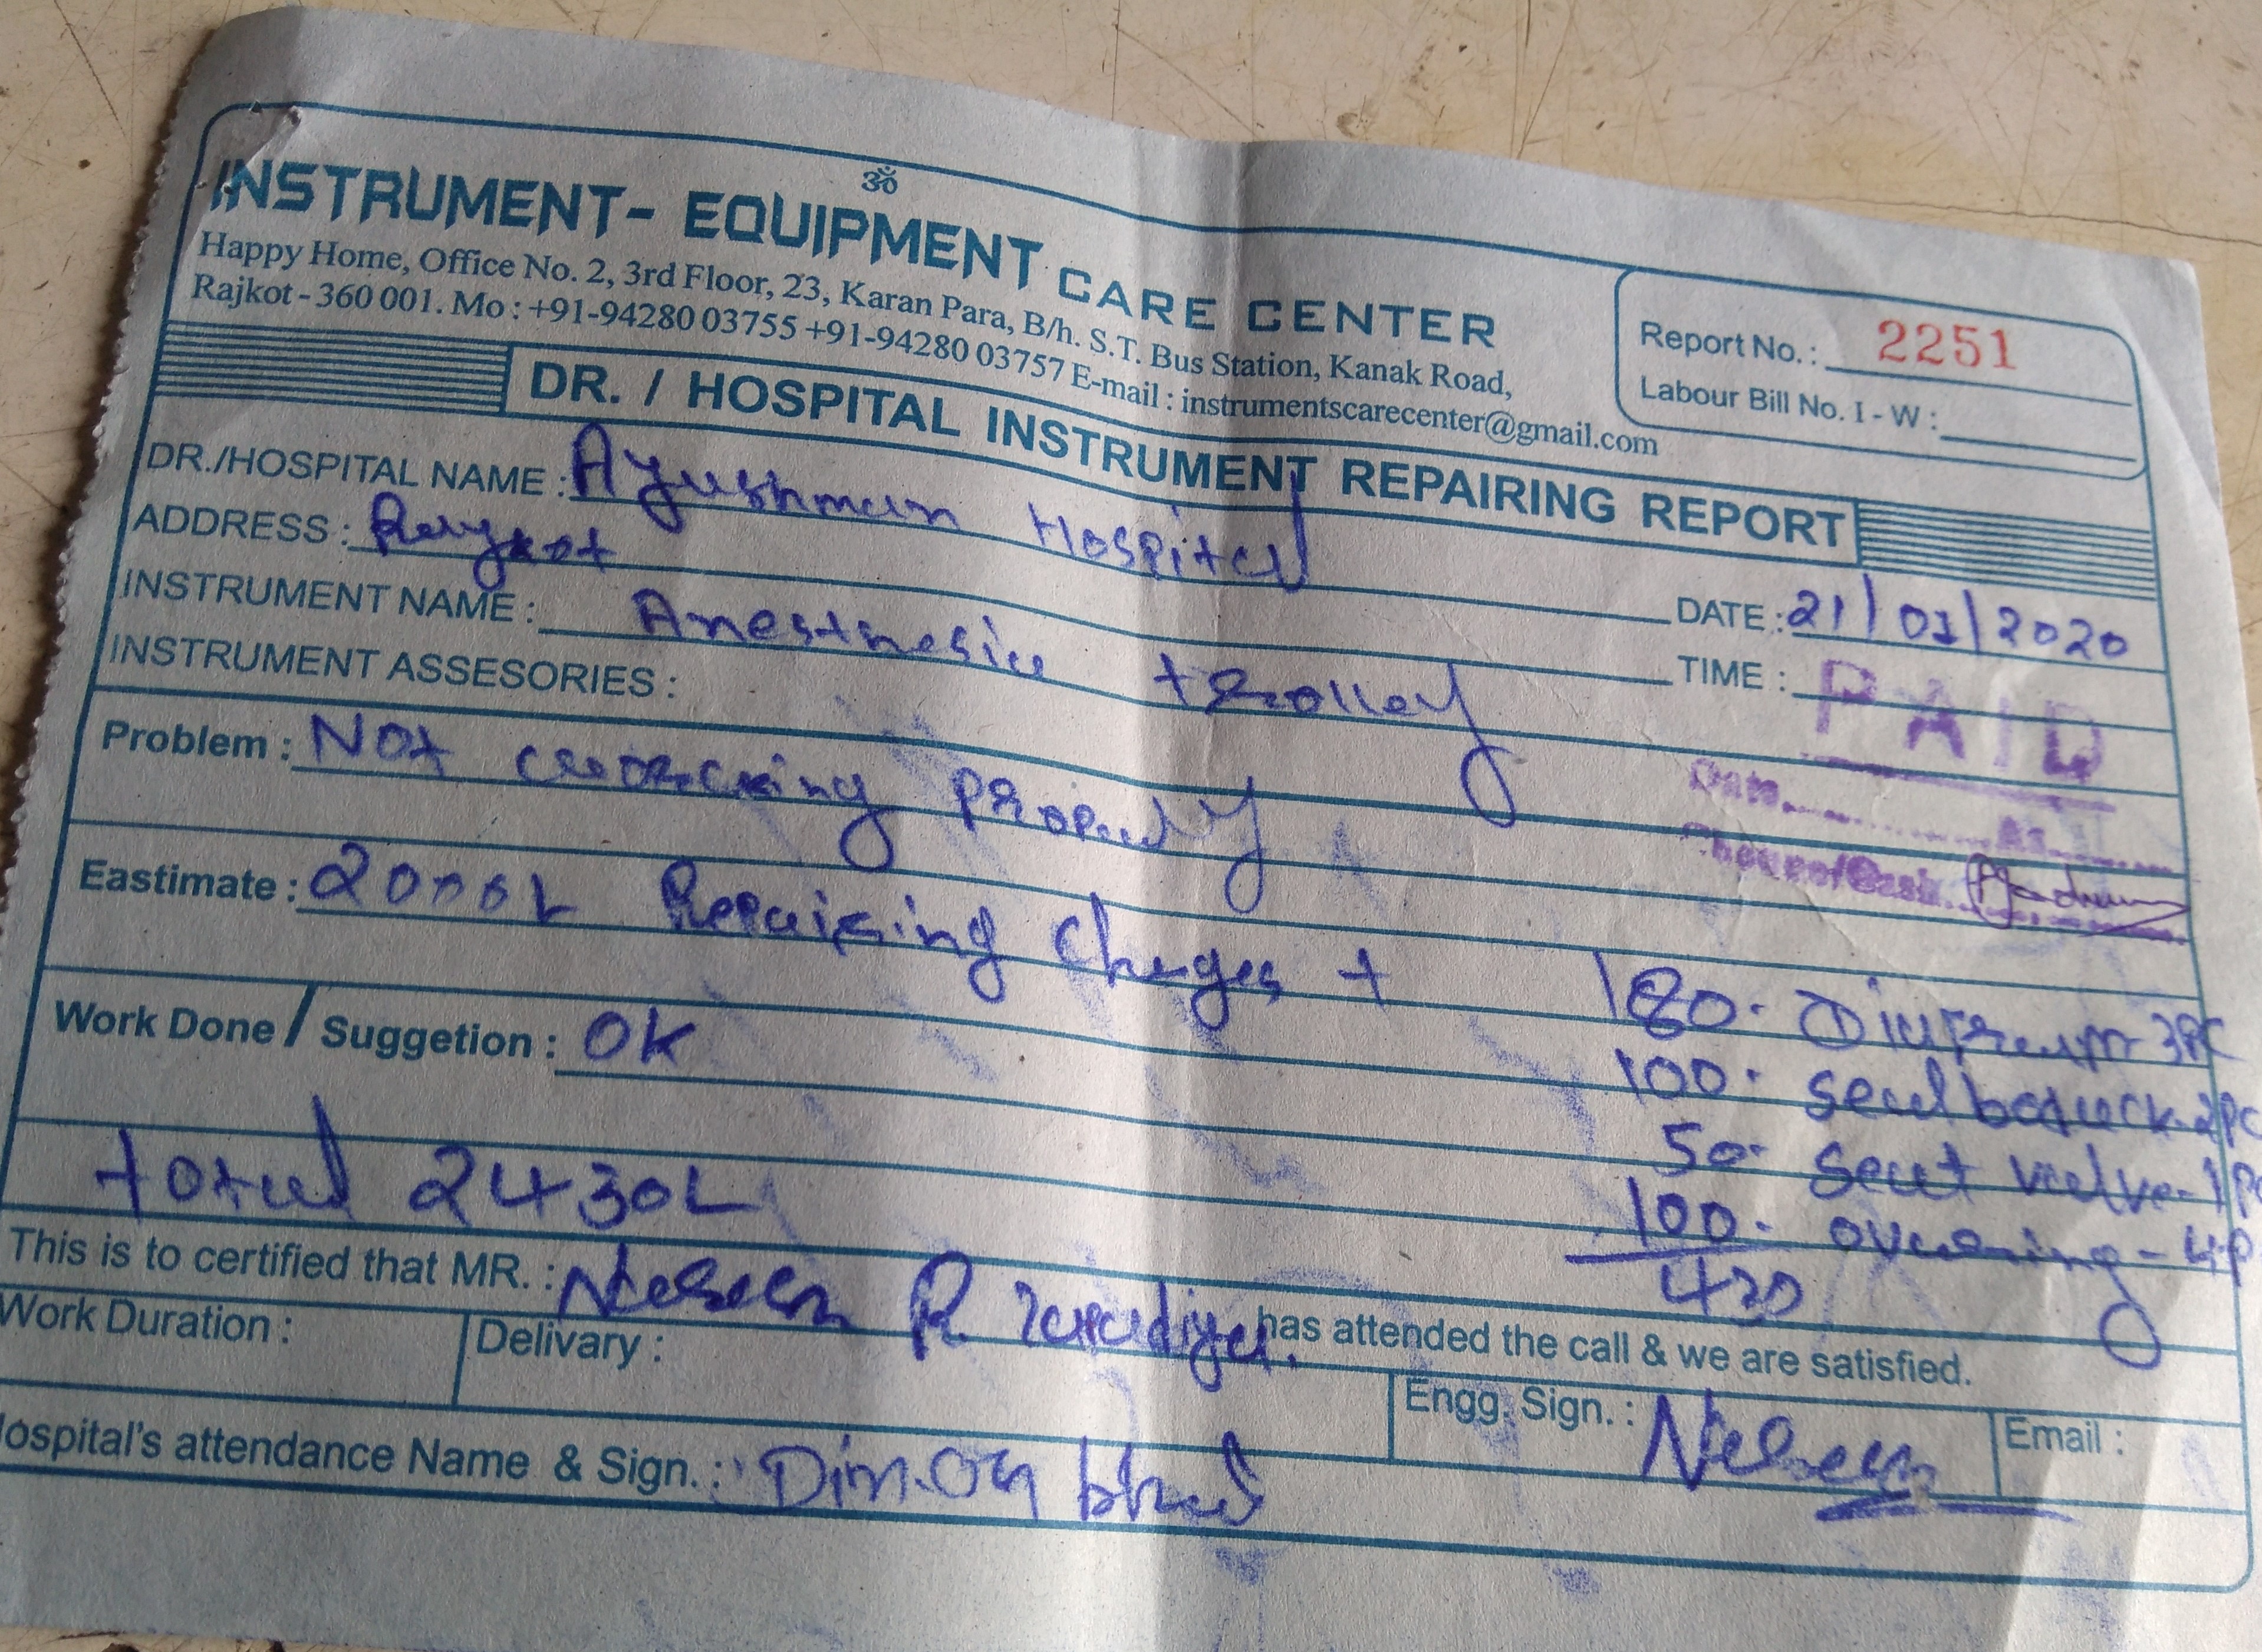 ॐ
INSTRUMENT- EQUIPMENT CARE CENTER
Happy Home, Office No. 2, 3rd Floor, 23, Karan Para, B/h. S.T. Bus Station, Kanak Road,
Rajkot - 360 001. Mo : +91-94280 03755 +91-94280 03757 E-mail : instrumentscarecenter@gmail.com
Report No. : 2251
Labour Bill No. I - W :
DR. / HOSPITAL INSTRUMENT REPAIRING REPORT
DR./HOSPITAL NAME : Ayushman Hospital
ADDRESS : Rajkot
DATE : 21/01/2020
INSTRUMENT NAME : Anesthesia trolley
TIME :
INSTRUMENT ASSESORIES :
PAID
Date
Problem : Not working properly
Eastimate : 2000L Repairing charges +
180. 3PC
100. 2PC
50. seat valve - 1P
100. - 4P
430
Work Done / Suggetion : OK
total 2430L
This is to certified that MR. : R. has attended the call & we are satisfied.
Work Duration :
Delivary :
Engg. Sign. :
Email :
ospital's attendance Name & Sign. :